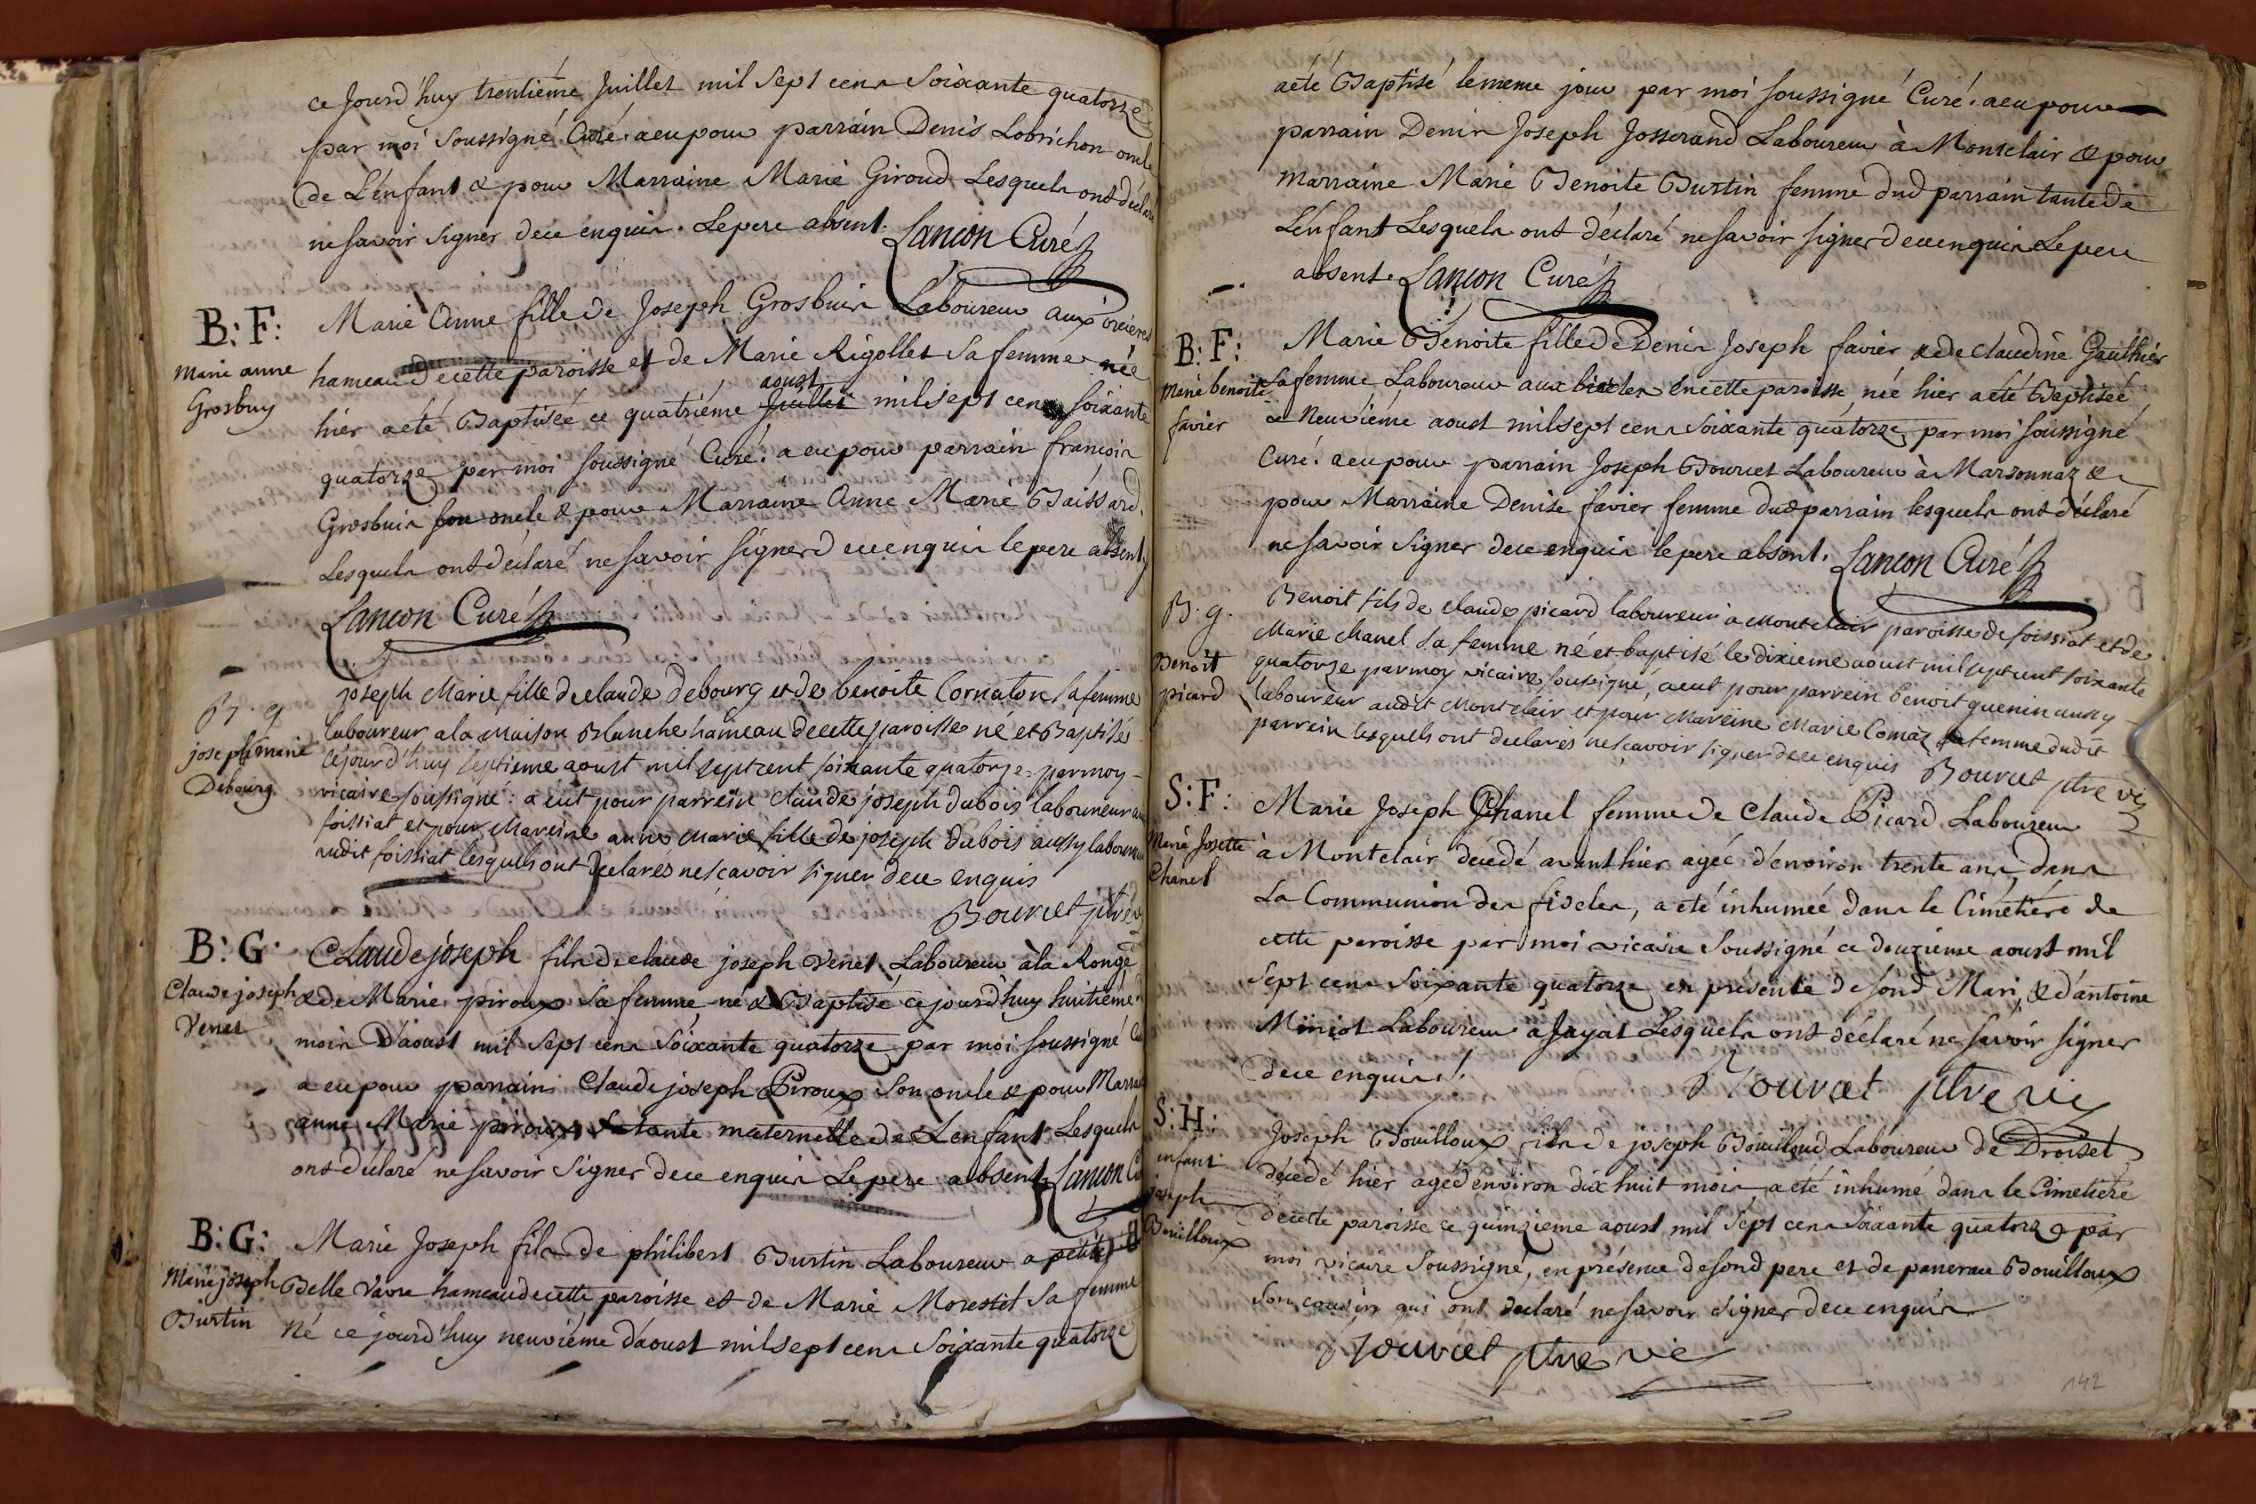 ce Jourd'huy trentiéme Juillet mil sept cens soixante quatorze
par moi soussigné Curé. a eu pour parrain Denis Lobrichon oncle
de L'enfant & pour Marraine Marie Giroud Lesquels ont déclaré
ne savoir signer de ce enquis. Le pere absent. Lançon Curé
B: F:
Marie anne
Grosbuy
Marie Anne fille de Joseph Grosbuis Laboureur aux
hameau de cette paroisse et de Marie Rigollet sa femme née
hier a eté Baptisée ce quatriéme Juillet aoust mil sept cens soixante
quatorze par moi soussigné Curé. a eu pour parrain francois
Grosbuis son oncle & pour Marraine Anne Marie Baissard.
Lesquels ont déclaré ne savoir signer de ce enquis le pere absent
Lançon Curé
B. g
joseph marie
Debourg
joseph Marie fille de claude Debourg et de benoite Cornaton sa femme
laboureur a la Maison Blanche hameau de cette paroisse né et Baptisé
cejourd'huy septieme aoust mil sept cent soixante quatorze par moy
vicaire soussigné : a eut pour parrein claude joseph dubois laboureur au
foissiat et pour Mareine anne Marie fille de joseph dubois aussy laboureur
audit foissiat lesquels ont declarés ne scavoir signer de ce enquis
Bourcet ptre
B: G:
Claude joseph
Venet
Claude joseph fils de claude joseph Venet Laboureur à la Ronge
& de Marie piroux sa femme né & Baptisé ce jourd'huy huitiéme
mois D'aoust mil sept cens soixante quatorze par moi soussigné
a eu pour parrain Claude joseph Piroux son oncle & pour Marraine
anne Marie piroux sa tante maternelle de L'enfant Lesquels
ont déclaré ne savoir signer de ce enquis Le pere absent Lançon
B: G:
Marie joseph
Burtin
Marie Joseph fils de philibert Burtin Laboureur a petite
Belle Vavre hameau de cette paroisse et de Marie Morestel sa femme
Né ce jourd'huy neuviéme d'aoust mil sept cens soixante quatorze
a eté Baptisé le meme jour par moi soussigné Curé. a eu pour
parrain Denis Joseph Josserand Laboureur à Montclair & pour
marraine Marie Benoite Burtin femme dud parrain tante de
L'enfant Lesquels ont déclaré ne savoir signer de ce enquis Le pere
absent. Lançon Curé
B: F:
Marie benoite
favier
Marie Benoite fille de Denis Joseph favier & de claudine Gauthier
sa femme Laboureur aux en cette paroisse née hier a eté Baptisée
ce Neuviéme aoust mil sept cens soixante quatorze par moi soussigné
Curé. a eu pour parrain Joseph Bourcet Laboureur à Marsonnaz &
pour Marraine Denise favier femme dud parrain lesquels ont déclaré
ne savoir signer de ce enquis le pere absent. Lançon Curé
B. g.
Benoit
picard
Benoit fils de claude picard laboureur a Montclair paroisse de foissiat et de
Marie Chanel sa femme né et baptisé le dixieme aoust mil sept cent soixante
quatorze par moy vicaire soussigné, a eut pour parrein benoit guenin aussy
laboureur audit Montclair et pour Mareine Marie Comaz femme dudit
parrein lesquels ont declarés ne scavoir signer de ce enquis Bourcet ptre vic
S: F:
Marie Josette
Chanel
Marie Joseph Chanel femme de Claude Picard Laboureur
à Montclair décédé avant hier agée d'environ trente ans dans
La Communion des fideles, a eté inhumée dans le Cimétiére de
cette paroisse par moi vicaire soussigné ce douzieme aoust mil
sept cens soixante quatorze en présence de sond Mari, & d'antoine
Minjot Laboureur à Jayat Lesquels ont déclaré ne savoir signer
de ce enquis.
Bourcet ptre vic
S: H:
enfant
joseph
Bouilloux
Joseph Bouilloux fils de joseph Bouilloud Laboureur de Droiset
décédé hier agé d'environ dix huit mois a eté inhumé dans le Cimetiére
de cette paroisse ce quinzieme aoust mil sept cens soixante quatorze par
moi vicaire soussigné, en présence de sond pere et de pancrace Bouilloux
son cousin qui ont declaré ne savoir signer de ce enquis
Bourcet ptre vic
142